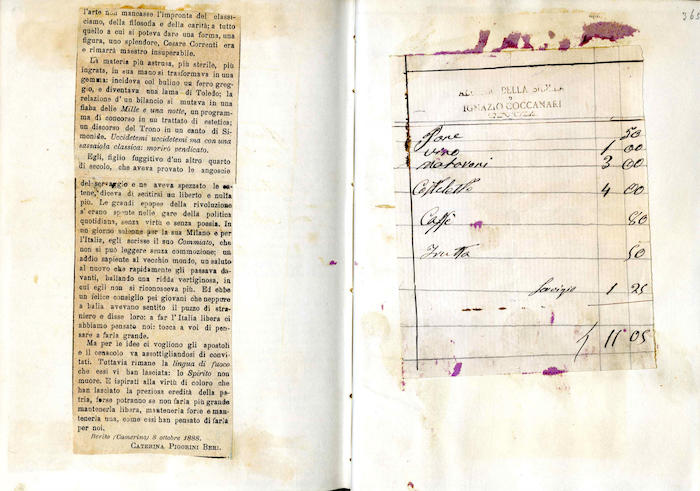 l'arte non mancasse l'impronta del classi-
cismo, della filosofia e della carità; a tutto
quello a cui si poteva dare una forma, una
figura, uno splendore, Cesare Correnti era
e rimarrà maestro insuperabile.
La materia più astrusa, più sterile, più
ingrata, in sua mano si trasformava in una
gemma: incideva col bulino un ferro greg-
gio, e diventava una lama di Toledo; la
relazione d'un bilancio si mutava in una
fiaba delle Mille e una notte, un program-
ma di concorso in un trattato di estetica;
un discorso del Trono in un canto di Si-
monide. Uccidetemi uccidetemi ma con una
sassaiola classica: morirò vendicato.
Egli, figlio fuggitivo d'un altro quarto
di secolo, che aveva provato le angoscie
del servaggio e ne aveva spezzato le ca-
tene, diceva di sentirsi un liberto e nulla
più. Le grandi epopee della rivoluzione
s'erano spente nelle gare della politica
quotidiana, senza virtù e senza poesia. In
un giorno solenne per la sua Milano e per
l'Italia, egli scrisse il suo Commiato, che
non si può leggere senza commozione; un
addio sapiente al vecchio mondo, un saluto
al nuovo che rapidamente gli passava da-
vanti, ballando una ridda vertiginosa, in
cui egli non si riconosceva più. Ed ebbe
un felice consiglio pei giovani che neppure
a balia avevano sentito il puzzo di stra-
niero e disse loro: a far l'Italia libera ci
abbiamo pensato noi: tocca a voi di pen-
sare a farla grande.
Ma per le idee ci vogliono gli apostoli
e il cenacolo va assottigliandosi di convi-
tati. Tuttavia rimane la lingua di fuoco
che essi vi han lasciata: lo Spirito non
muore. E ispirati alla virtù di coloro che
han lasciato la preziosa eredità della pa-
tria, forse potranno se non farla più grande
mantenerla libera, mantenerla forte e man-
tenerla una, come essi han pensato di farla
per noi.
Berito (Camerino) 8 ottobre 1888.
CATERINA PIGORINI BERI.
365
DELLA SICILIA
IGNAZIO COCCANARI
Pane 50
vino 1 00
3 00
Costolette 4 00
Caffè 80
Frutta 50
Servizio 1 25
11 05